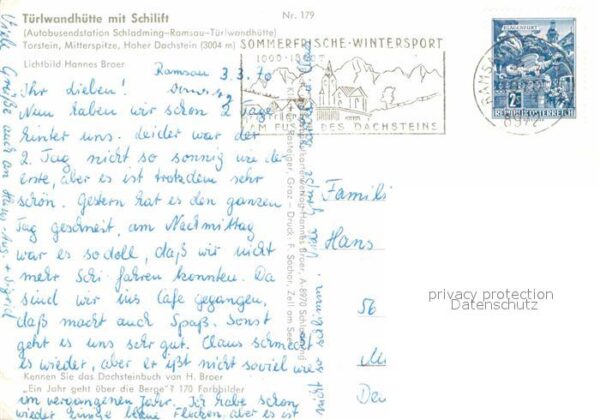 Türlwandhütte mit Schilift
(Autobusendstation Schladming–Ramsau–Türlwandhütte)
Torstein, Mitterspitze, Hoher Dachstein (3004 m)
Lichtbild Hannes Broer
Nr. 179
SOMMERFRISCHE-WINTERSPORT
AM FUSSE DES DACHSTEINS
RAMSAU
8972
KLAGENFURT
2 S
REPUBLIK ÖSTERREICH
Ramsau 3.3.70
Ihr Lieben! Dienstag
Nun haben wir schon 2 Tage
hinter uns. Leider war der
2. Tag nicht so sonnig wie der
erste, aber es ist trotzdem sehr
schön. Gestern hat es den ganzen
Tag geschneit, am Nachmittag
war es so doll, daß wir nicht
mehr Schi fahren konnten. Da
sind wir ins Cafe gegangen,
daß macht auch Spaß. Sonst
geht es uns sehr gut. Claus schmeckt
es wieder, aber er ißt nicht soviel wie
Kennen Sie das Dachsteinbuch von H. Broer
„Ein Jahr geht über die Berge"? 170 Farbbilder
im vergangenen Jahr. Ich habe schon
wieder einige blaue Flecken, aber es ist
Viele Grüße auch an
Hannes Broer, A 8970 Schladming
Graz – Druck: F. Sochor, Zell am See
Famili
Hans
56
privacy protection
Datenschutz